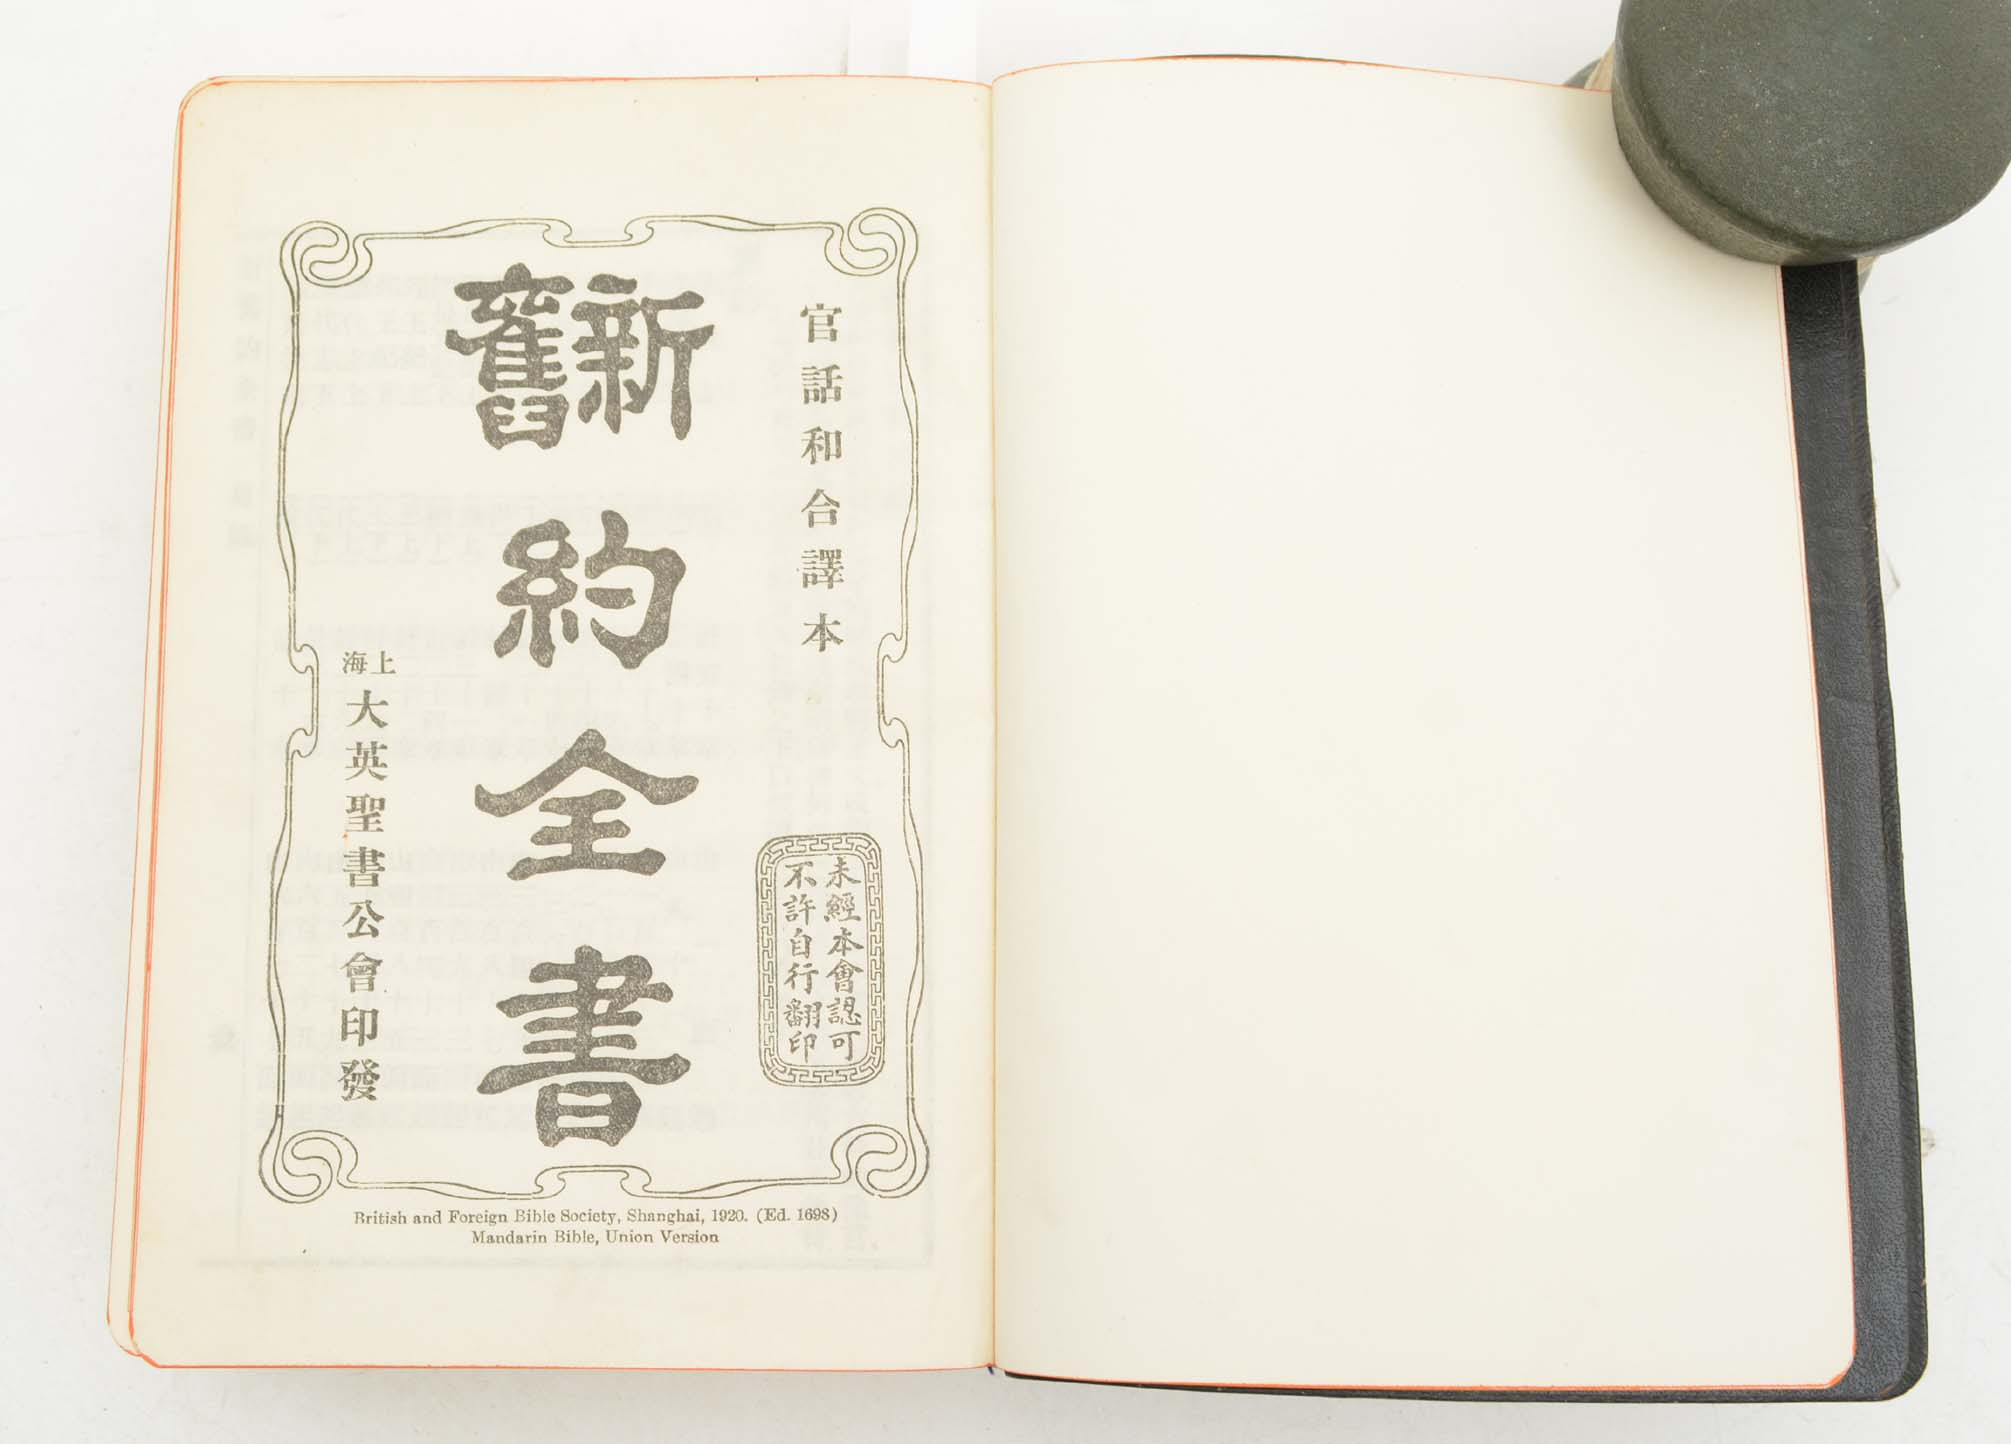 官話和合譯本
未經本會認可
不許自行翻印
新舊約全書
上海
大英聖書公會印發
British and Foreign Bible Society, Shanghai, 1920. (Ed. 1698)
Mandarin Bible, Union Version